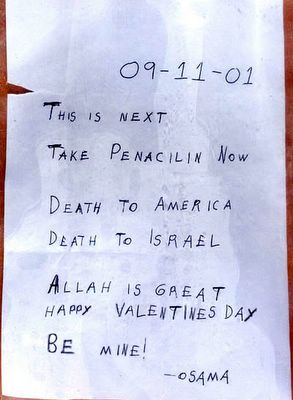 09-11-01
THIS IS NEXT
TAKE PENACILIN NOW
DEATH TO AMERICA
DEATH TO ISRAEL
ALLAH IS GREAT
HAPPY VALENTINES DAY
BE MINE!
—OSAMA